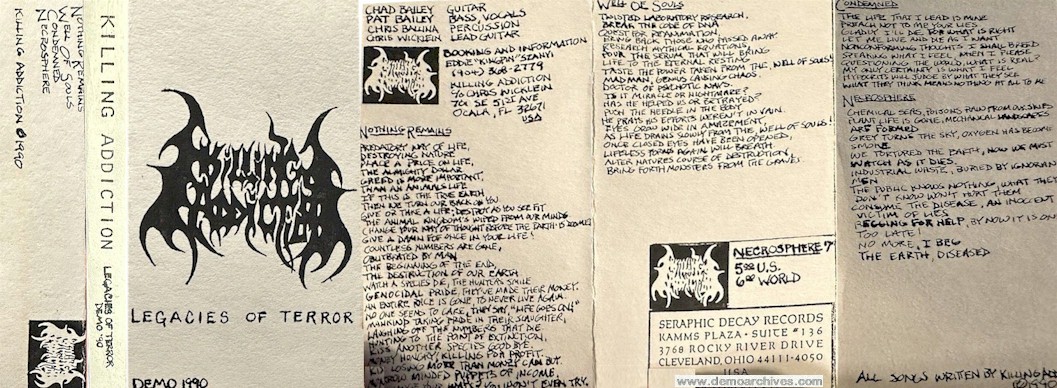 NOTHING REMAINS
WELL OF SOULS
CONDEMNED
NECROSPHERE
KILLING ADDICTION © 1990
KILLING ADDICTION
LEGACIES OF TERROR
DEMO '90
KILLING
ADDICTION
LEGACIES OF TERROR
DEMO 1990
CHAD BAILEY GUITAR
PAT BAILEY BASS, VOCALS
CHRIS BALLINA PERCUSSION
CHRIS WICKLEIN LEAD GUITAR
BOOKING AND INFORMATION
EDDIE "KINGPIN" SZANYI
(904) 368-2779
KILLING ADDICTION
c/o CHRIS WICKLEIN
701 SE 51ST AVE
OCALA, FL 32671
USA
NOTHING REMAINS
PREDATORY WAY OF LIFE,
DESTROYING NATURE
PLACE A PRICE ON LIFE,
THE ALMIGHTY DOLLAR
GREED IS MORE IMPORTANT,
THAN AN ANIMALS LIFE
IF THIS IS THE TRUE EARTH
THEN WE TURN OUR BACK ON YOU
GIVE OR TAKE A LIFE; DESTROY AS YOU SEE FIT
THE ANIMAL KINGDOM'S WIPED FROM OUR MINDS
CHANGE YOUR WAY OF THOUGHT BEFORE THE EARTH IS
GIVE A DAMN FOR ONCE IN YOUR LIFE!
COUNTLESS NUMBERS ARE GONE,
OBLITERATED BY MAN
THE BEGINNING OF THE END,
THE DESTRUCTION OF OUR EARTH
WATCH A SPECIES DIE, THE HUNTERS SMILE
GENOCIDAL PRIDE, THEY'VE MADE THEIR MONEY.
AN ENTIRE RACE IS GONE, TO NEVER LIVE AGAIN.
NO ONE SEEMS TO CARE, THEY SAY, "LIFE GOES ON!"
MANKIND TAKING PRIDE IN THEIR SLAUGHTER,
LAUGHING OFF THE NUMBERS THAT DIE.
HUNTING TO THE POINT OF EXTINCTION,
KISS ANOTHER SPECIES GOODBYE.
MONEY HUNGRY, KILLING FOR PROFIT.
MORE THAN MONEY CAN BUY.
NARROW MINDED PUPPETS OF INCOME,
YOU WON'T EVEN TRY.
WELL OF SOULS
TWISTED LABORATORY RESEARCH.
BREAK THE CODE OF DNA
QUEST FOR REANIMATION
BRING BACK THOSE WHO PASSED AWAY
RESEARCH MYTHICAL EQUATIONS
FOR THE SERUM THAT WILL BRING
LIFE TO THE ETERNAL RESTING
TASTE THE POWER TAKEN FROM THE, WELL OF SOULS!
MADMAN, GENIUS CAUSING CHAOS.
DOCTOR OF PSYCHOTIC WAYS.
IS IT MIRACLE OR NIGHTMARE?
HAS HE HELPED US OR BETRAYED?
PUSH THE NEEDLE IN THE BODY
HE PRAYS HIS EFFORTS WEREN'T IN VAIN.
EYES GROW WIDE IN AMAZEMENT,
AS LIFE DRAWS SLOWLY FROM THE, WELL OF SOULS!
ONCE CLOSED EYES HAVE BEEN OPENED,
LIFELESS FORMS AGAIN WILL BREATH
ALTER NATURES COURSE OF DESTRUCTION,
BRING FORTH MONSTERS FROM THE GRAVES
NECROSPHERE 7"
5.00 U.S.
6.00 WORLD
SERAPHIC DECAY RECORDS
KAMMS PLAZA • SUITE #136
3768 ROCKY RIVER DRIVE
CLEVELAND, OHIO 44111-4050
USA
CONDEMNED
THE LIFE THAT I LEAD IS MINE
PREACH NOT TO ME YOUR LIES
GLADLY I'LL DIE, FOR WHAT IS RIGHT
LET ME LIVE AND DIE AS I WANT
NONCONFORMING THOUGHTS I SHALL BREED
SPEAKING WHAT I FEEL WHEN I PLEASE
QUESTIONING THE WORLD, WHAT IS REAL?
MY ONLY CERTAINTY IS WHAT I FEEL
HYPOCRITS WILL JUDGE BY WHAT THEY SEE
WHAT THEY THINK MEANS NOTHING AT ALL TO ME
NECROSPHERE
CHEMICAL SEAS, POISONS PAID FROM OUR SINS
PLANT LIFE IS GONE, MECHANICAL LANDSCAPES
ARE FORMED
GREY TURNS THE SKY, OXYGEN HAS BECOME
SMOKE
WE TORTURED THE EARTH, NOW WE MUST
WATCH AS IT DIES.
INDUSTRIAL WASTE, BURIED BY IGNORAN
MEN
THE PUBLIC KNOWS NOTHING, WHAT THEY
DON'T KNOW WON'T HURT THEM
CONSUME THE DISEASE, AN INOCENT
VICTIM OF LIES
BEGGING FOR HELP, BY NOW IT IS ON
TOO LATE!
NO MORE, I BEG
THE EARTH, DISEASED
ALL SONGS WRITTEN BY KILLING AD
www.demoarchives.com